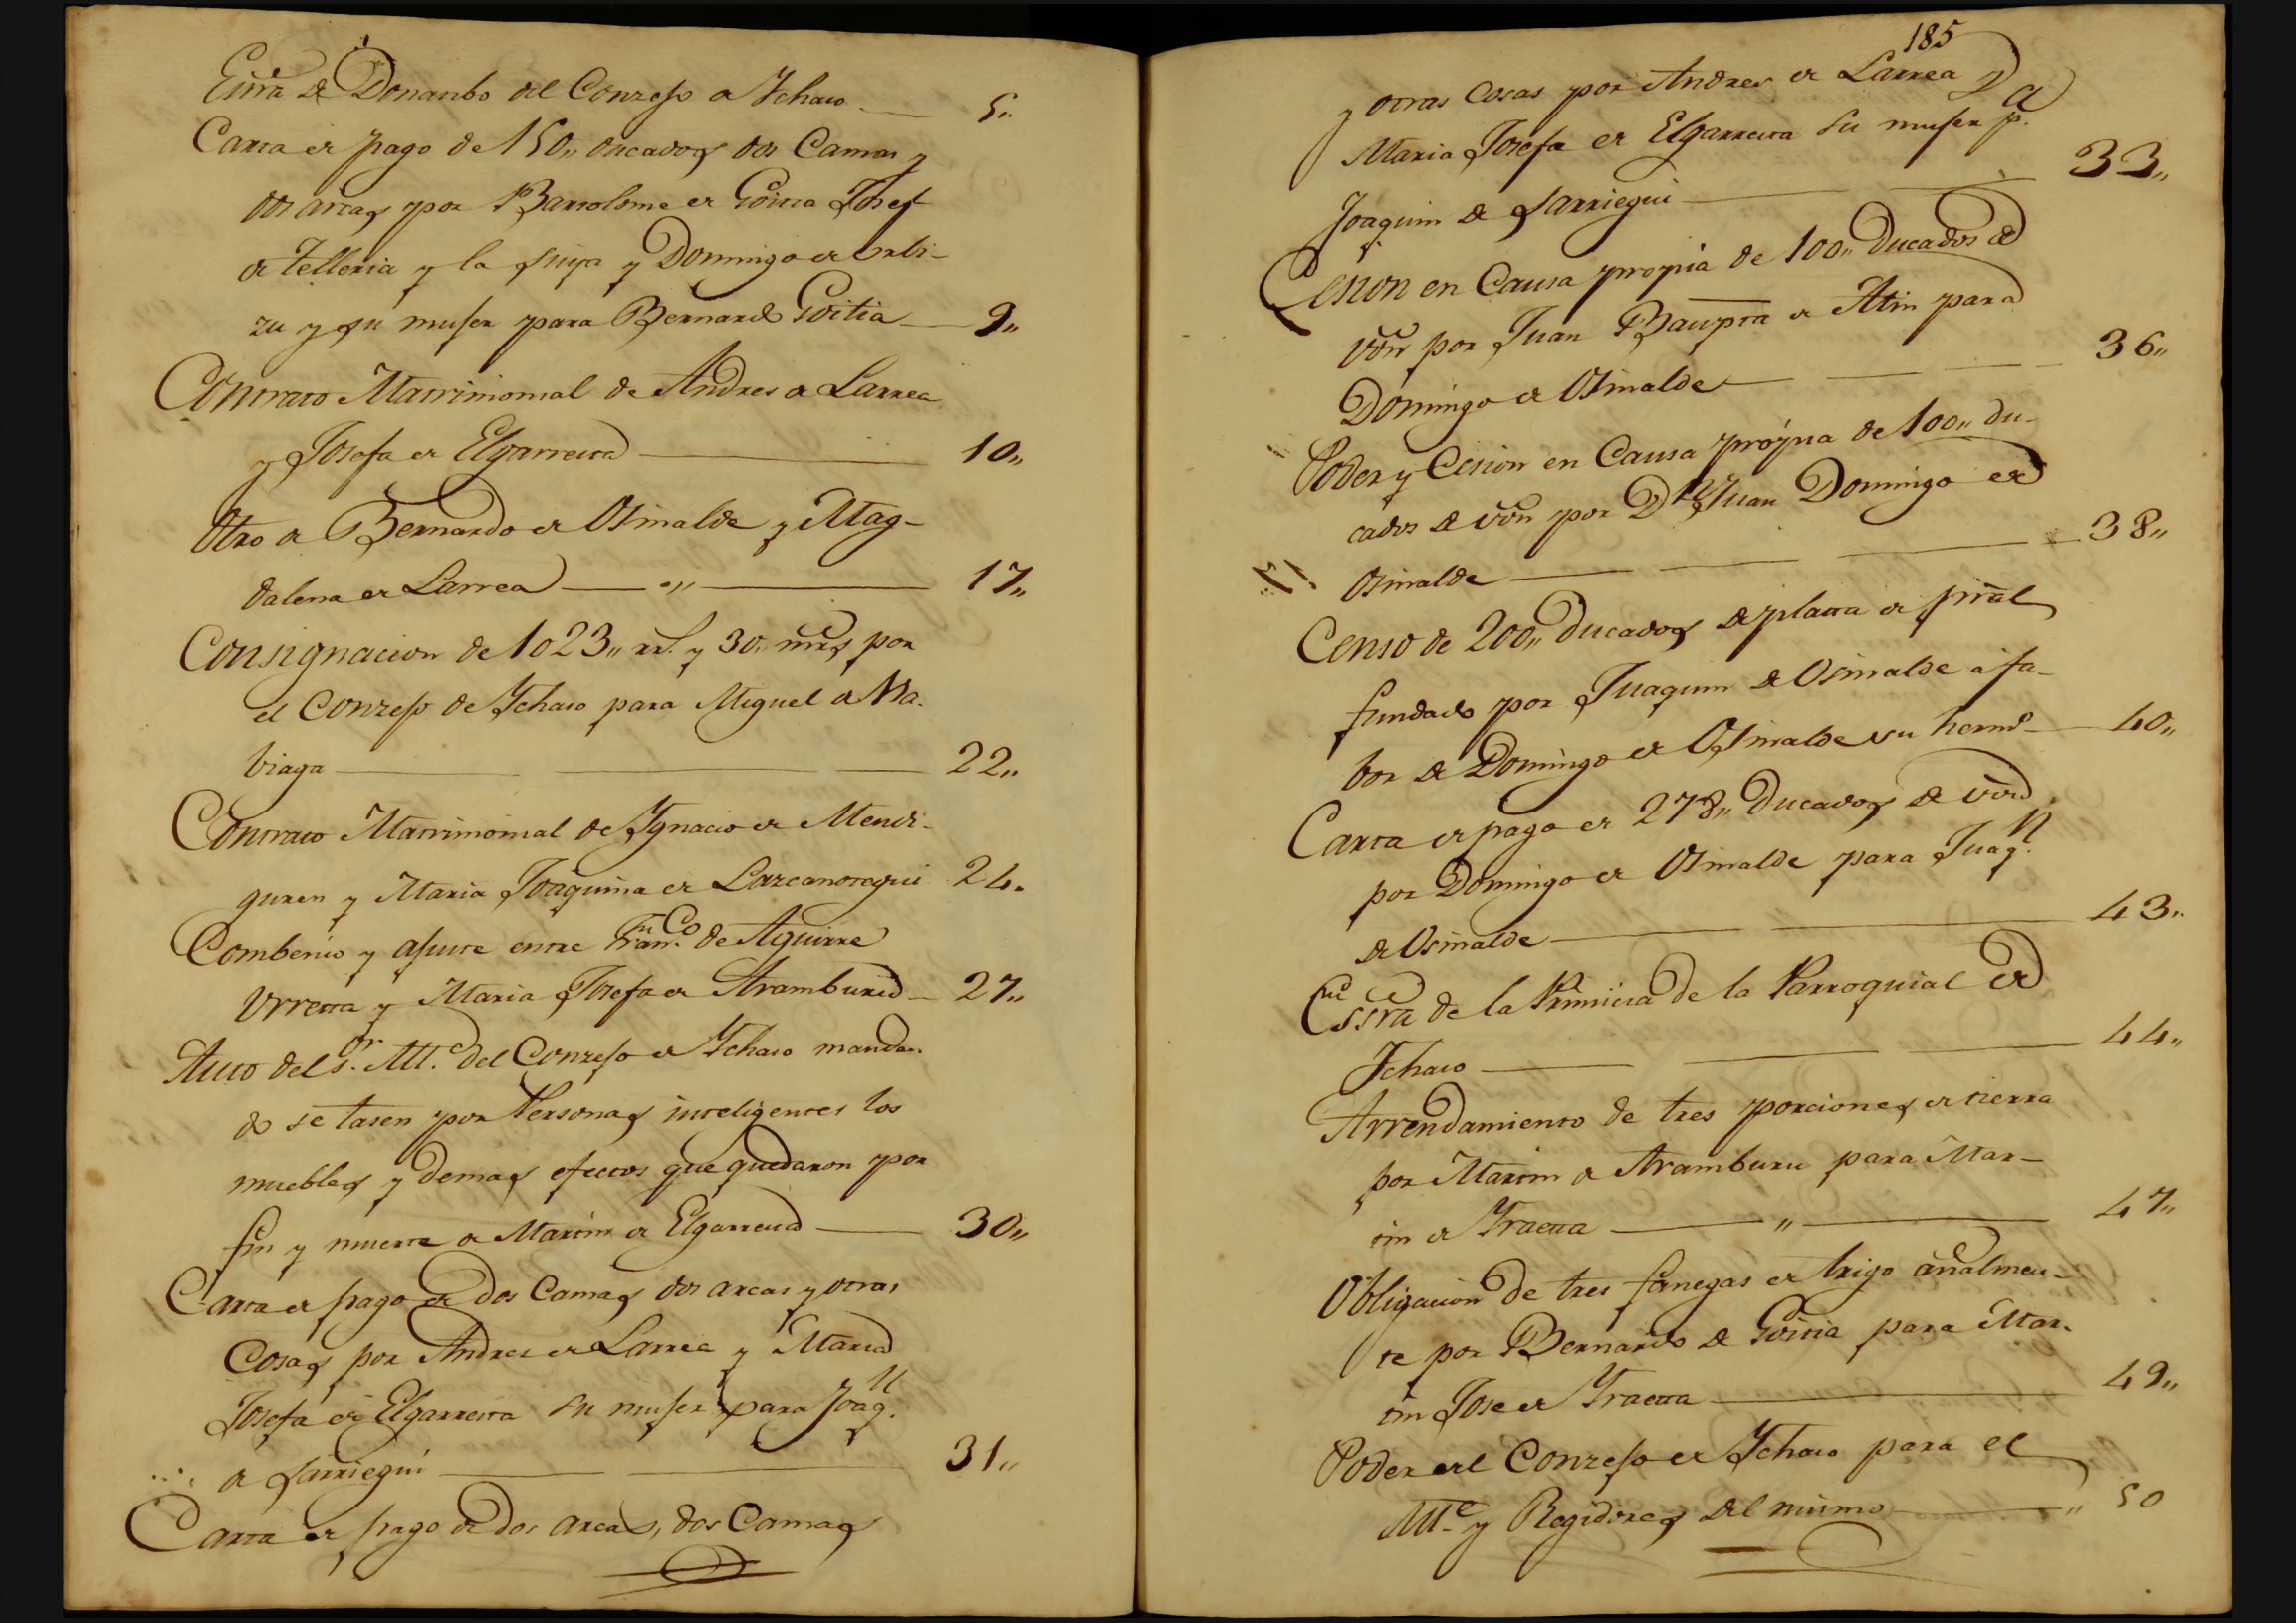 Escra de Donanbo del Conzejo de Ychaso — 5,,
Carta de pago de 150,, ducados dos Camas y
dos arcas por Bartolome de Goitia Josef
de Telleria y la suya y Domingo de Urbi-
zu y su muger para Bernardo Goitia — 9,,
Contrato Matrimonial de Andres de Larrea
y Josefa de Elgarresta — 10,,
Otro de Bernardo de Osinalde y Mag-
dalena de Larrea — ,, — 17,,
Consignacion de 1023,, rs. y 30,, mrs por
el Conzejo de Ychaso para Miguel de Na-
biaga — 22,,
Contrato Matrimonial de Ygnacio de Mendi-
guren y Maria Joaquina de Lazcanotegui 24,,
Combenio y ajuste entre Franco. de Aguirre
Urreta y Maria Josefa de Aramburu — 27,,
Auto del Sor. Alce. del Conzejo de Ychaso mandan-
do se tasen por Personas inteligentes los
muebles y demas efectos que quedaron por
fin y muerte de Martin de Elgarresta — 30,,
Carta de pago de dos Camas dos arcas y otras
Cosas por Andres de Larrea y Maria
Josefa de Elgarresta su muger para Joaqn.
de Sarriegui — 31,,
Carta de pago de dos arcas, dos Camas
185
y otras Cosas por Andres de Larrea y
Maria Josefa de Elgarresta su muger pa.
Joaquin de Sarriegui — 33,,
Cesion en Causa propia de 100,, Ducados de
von por Juan Baupta de Atin para
Domingo de Osinalde — 36,,
Poder y Cesion en Causa propia de 100,, du-
cados de von por Dn Juan Domingo de
Osinalde — 38,,
Censo de 200,, Ducados de plata de prinal
fundado por Juaquin de Osinalde á fa-
bor de Domingo de Osinalde su hermo — 40,,
Carta de pago de 278,, Ducados de von
por Domingo de Osinalde para Juaqn.
de Osinalde — 43,,
Essra de la Primicia de la Parroquial de
Ychaso — 44,,
Arrendamiento de tres porciones de tierra
por Martin de Aramburu para Mar-
tin de Yraeta — ,, — 47,,
Obligacion de tres fanegas de trigo añalmen-
te por Bernardo de Goitia para Mar-
tin Jose de Yraeta — 49,,
Poder del Conzejo de Ychaso para el
Alce. y Regidores del mismo — ,, 50